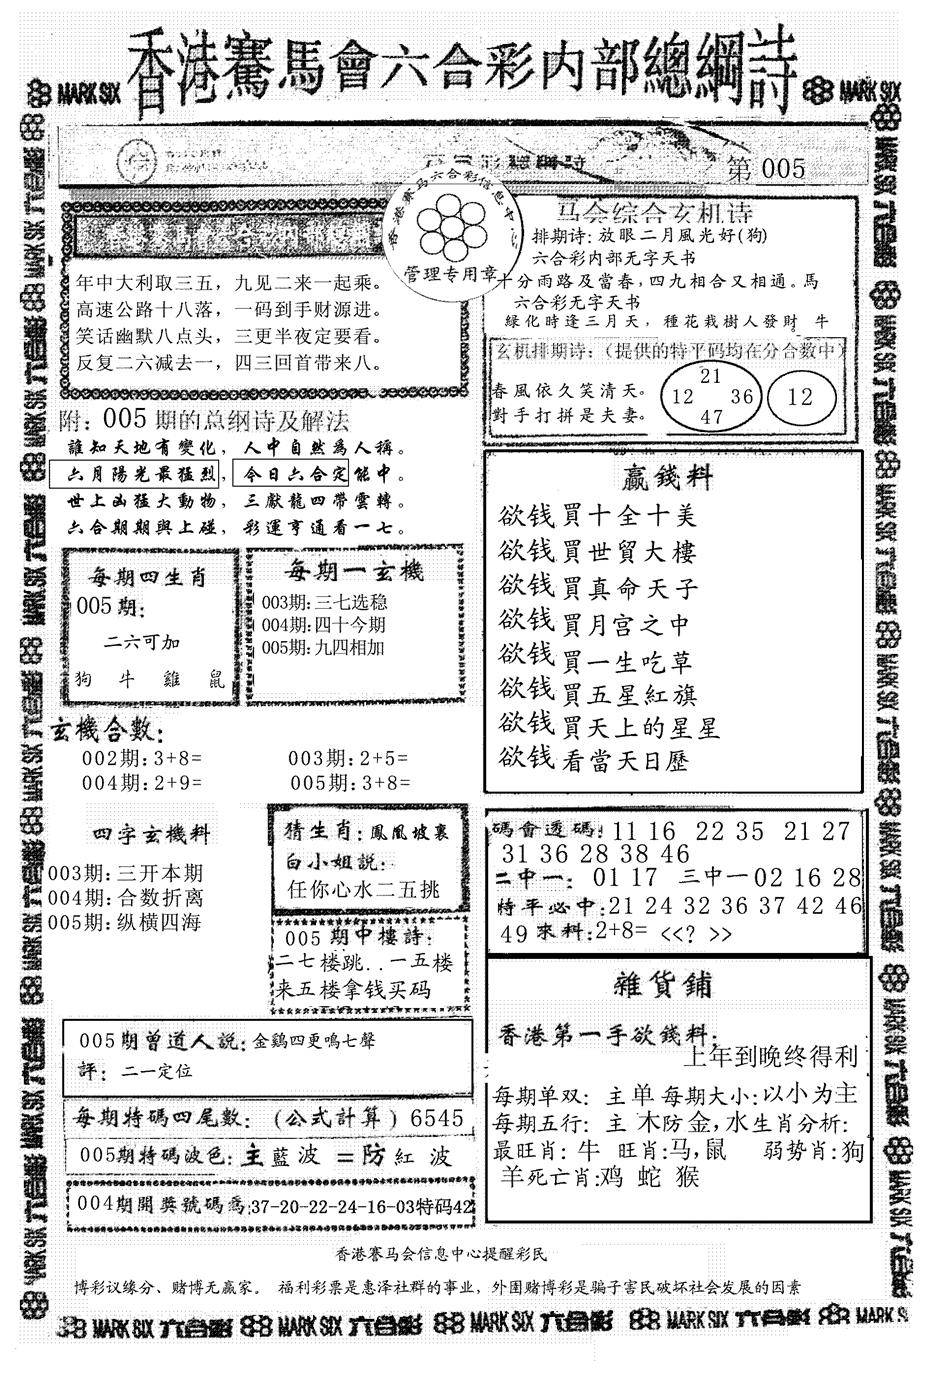 香港賽馬會六合彩内部總綱詩
MARK SIX
MARK SIX
第 005
香港赛马六合彩信息中心
管理专用章
年中大利取三五，九见二来一起乘。
高速公路十八落，一码到手财源进。
笑话幽默八点头，三更半夜定要看。
反复二六减去一，四三回首带来八。
马会综合玄机诗
排期诗: 放眼二月風光好(狗)
六合彩内部无字天书
十分雨路及當春，四九相合又相通。馬
六合彩无字天书
綠化時逢三月天，種花栽樹人發財 牛
玄机排期诗:（提供的特平码均在分合数中）
春風依久笑清天。
對手打拼是夫妻。
21
12 36
47
12
附: 005 期的总纲诗及解法
誰知天地有變化，人中自然為人稱。
六月陽光最猛烈，今日六合定能中。
世上凶猛大動物，三獻龍四帶雲轉。
六合期期與上碰，彩運亨通看一七。
每期四生肖
005期:
二六可加
狗 牛 雞 鼠
每期一玄機
003期:三七选稳
004期:四十今期
005期:九四相加
玄機合數:
002期:3+8= 003期:2+5=
004期:2+9= 005期:3+8=
赢錢料
欲钱買十全十美
欲钱買世貿大樓
欲钱買真命天子
欲钱買月宫之中
欲钱買一生吃草
欲钱買五星紅旗
欲钱買天上的星星
欲钱看當天日歷
四字玄機料
003期:三开本期
004期:合数折离
005期:纵横四海
猜生肖:鳳凰坡裏
白小姐説:
任你心水二五挑
005期中樓詩:
二七楼跳..一五楼
来五楼拿钱买码
碼會透碼:11 16 22 35 21 27
31 36 28 38 46
二中一: 01 17 三中一02 16 28
特平必中:21 24 32 36 37 42 46
49 來料:2+8= <<? >>
雜貨鋪
香港第一手欲錢料:
上年到晚终得利
每期单双: 主单 每期大小:以小为主
每期五行: 主 木防金,水生肖分析:
最旺肖: 牛 旺肖:马,鼠 弱势肖:狗
羊死亡肖:鸡 蛇 猴
005期曾道人説:金鷄四更鳴七聲
評: 二一定位
每期特碼四尾數:（公式計算）6545
005期特碼波色:主藍波 =防紅 波
004期開獎號碼為:37-20-22-24-16-03特码42
香港赛马会信息中心提醒彩民
博彩议缘分、赌博无赢家。 福利彩票是惠泽社群的事业，外围赌博彩是骗子害民破坏社会发展的因素
MARK SIX 六合彩 MARK SIX 六合彩 MARK SIX 六合彩 MARK SIX 六合彩 MARK SIX